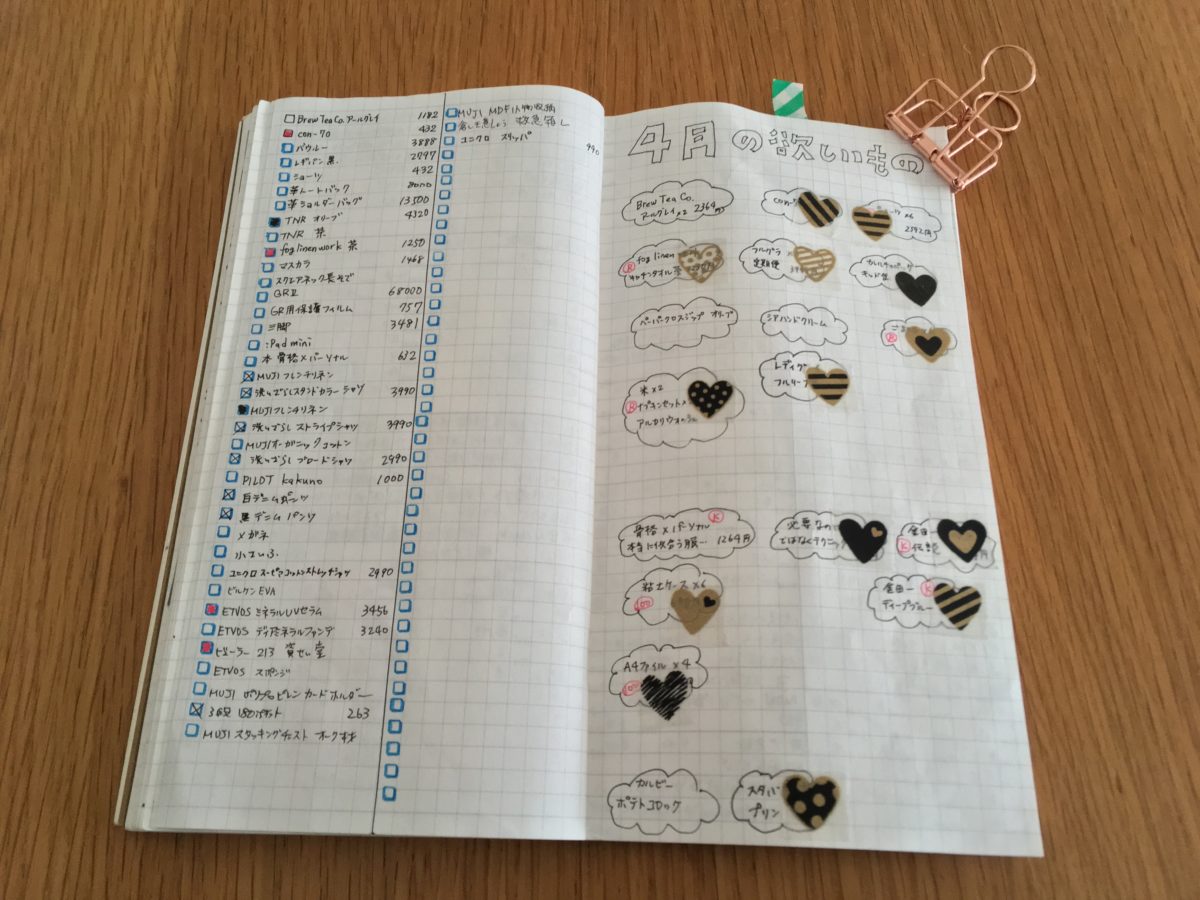 Brew Tea Co. アールグレイ 1182
con-70 432
パウルー 3888
レギパン 黒 2997
ショーツ 432
革トートバッグ 8000
革ショルダーバッグ 13500
TNR オリーブ 4320
TNR 茶
fog linen work 茶 1250
マスカラ 1468
スクエアネック長そで
GRⅡ 68000
GR用保護フィルム 757
三脚 3481
iPad mini
本 骨格×パーソナル 632
MUJIフレンチリネン
洗いざらしスタンドカラーシャツ 3990
MUJIフレンチリネン
洗いざらし ストライプシャツ 3990
MUJIオーガニックコットン
洗いざらし ブロードシャツ 2990
PILOT kakuno 1000
白デニムパンツ
黒デニムパンツ
メガネ
小さいふ
ユニクロ スーピマコットンストレッチシャツ 2990
ビルケン EVA
ETVOS ミネラルUVセラム 3456
ETVOS ディアミネラルファンデ 3240
ビューラー 213 資せい堂
ETVOS スポンジ
MUJI ポリプロピレン カードホルダー
263
MUJI スタッキングチェスト オーク材
MUJI MDF小物収納
救急箱 L
ユニクロ スリッパ
990
4月の欲しいもの
Brew Tea Co.
アールグレイ×2 2364円
con-
×6
2592円
fog linen
キッチンタオル 茶
フルグラ
定期便
キッド
ペーパークロスジップ オリーブ
シアハンドクリーム
レディグ
フルリーブ
米×2
ナプキンセット×
アルカリウォッシュ
骨格×パーソナル
本当に似合う服… 1264円
必要なの
ではなくテクニック
金田一
伝説
円
粘土ケース×6
100
金田一
ディープブルー
A4ファイル×4
100
カルビー
ポテトコロッケ
スタバ
プリン